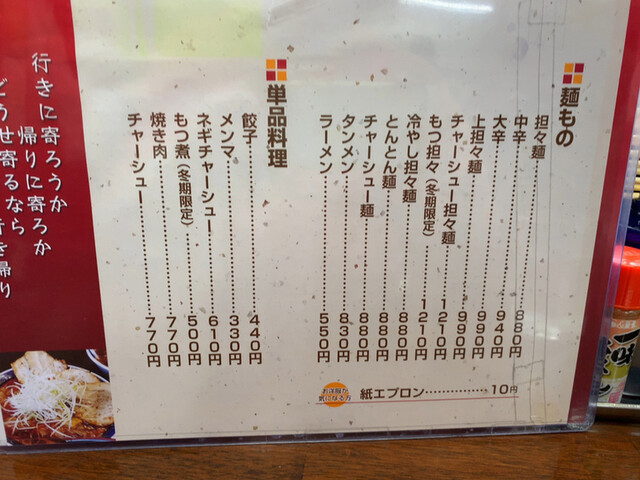 麺もの
担々麺……………880円
中辛……………940円
大辛……………990円
上担々麺……………990円
チャーシュー担々麺……1210円
もつ担々(冬期限定)……1210円
冷やし担々麺……………880円
とんとん麺……………880円
チャーシュー麺……………880円
タンメン……………830円
ラーメン……………550円
単品料理
餃子……………440円
メンマ……………330円
ネギチャーシュー……………610円
もつ煮(冬期限定)……………500円
焼き肉……………770円
チャーシュー……………770円
お洋服が
気になる方
紙エプロン……………10円
行きに寄ろうか
帰りに寄ろか
どうせ寄るなら
行き帰り